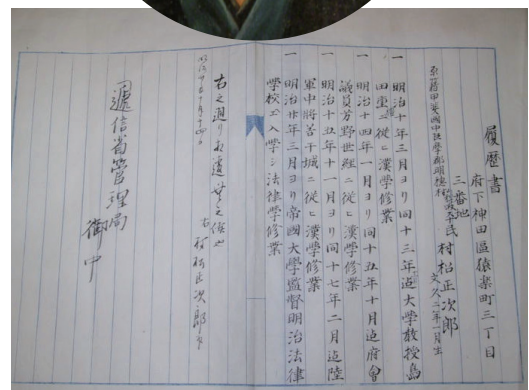 履歴書
府下神田區猿楽町三丁目
三番地
平民 村松正次郎
文久二年一月生
一 明治十年三月ヨリ同十三年迠大學教授島
田重禮ニ從ヒ漢學修業
一 明治十四年一月ヨリ同十五年十月迠府會
議員芳野世經ニ從ヒ漢學修業
一 明治十五年十一月ヨリ同十七年二月迠陸
軍中將若干城ニ從ヒ漢學修業
一 明治廿年三月ヨリ帝國大學監督明治法律
學校エ入學シ法律學修業
右之通リ相違無之候也
右 村松正次郎
逓信省管理局
御中